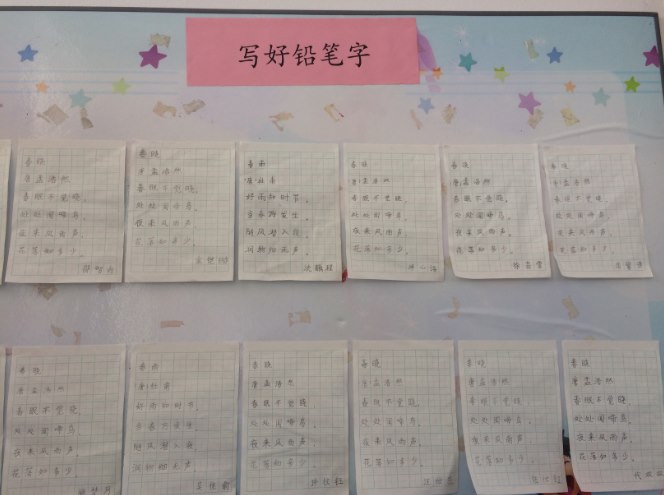 写好铅笔字
春晓
唐孟浩然
春眠不觉晓
处处闻啼鸟
夜来风雨声
花落知多少
春晓
唐孟浩然
春眠不觉晓，
处处闻啼鸟。
夜来风雨声，
花落知多少。
春雨
唐杜甫
好雨知时节，
当春乃发生。
随风潜入夜，
润物细无声。
春晓
唐孟浩然
春眠不觉晓，
处处闻啼鸟。
夜来风雨声，
花落知多少。
春晓
唐孟浩然
春眠不觉晓，
处处闻啼鸟。
夜来风雨声，
花落知多少。
春晓
唐孟浩然
春眠不觉晓，
处处闻啼鸟。
夜来风雨声，
花落知多少。
春晓
唐孟浩然
春眠不觉晓
处处闻啼鸟
夜来风雨声
花落知多少
春雨
唐杜甫
好雨知时节，
当春乃发生。
随风潜入夜，
润物细无声。
春晓
唐孟浩然
春眠不觉晓
处处闻啼鸟。
夜来风雨声，
花落知多少。
春晓
唐孟浩然
春眠不觉晓，
处处闻啼鸟。
夜来风雨声，
花落知多少。
春晓
唐孟浩然
春眠不觉晓，
处处闻啼鸟。
夜来风雨声，
花落知多少。
春晓
唐孟浩然
春眠不觉晓，
处处闻啼鸟。
夜来风雨声，
花落知多少。